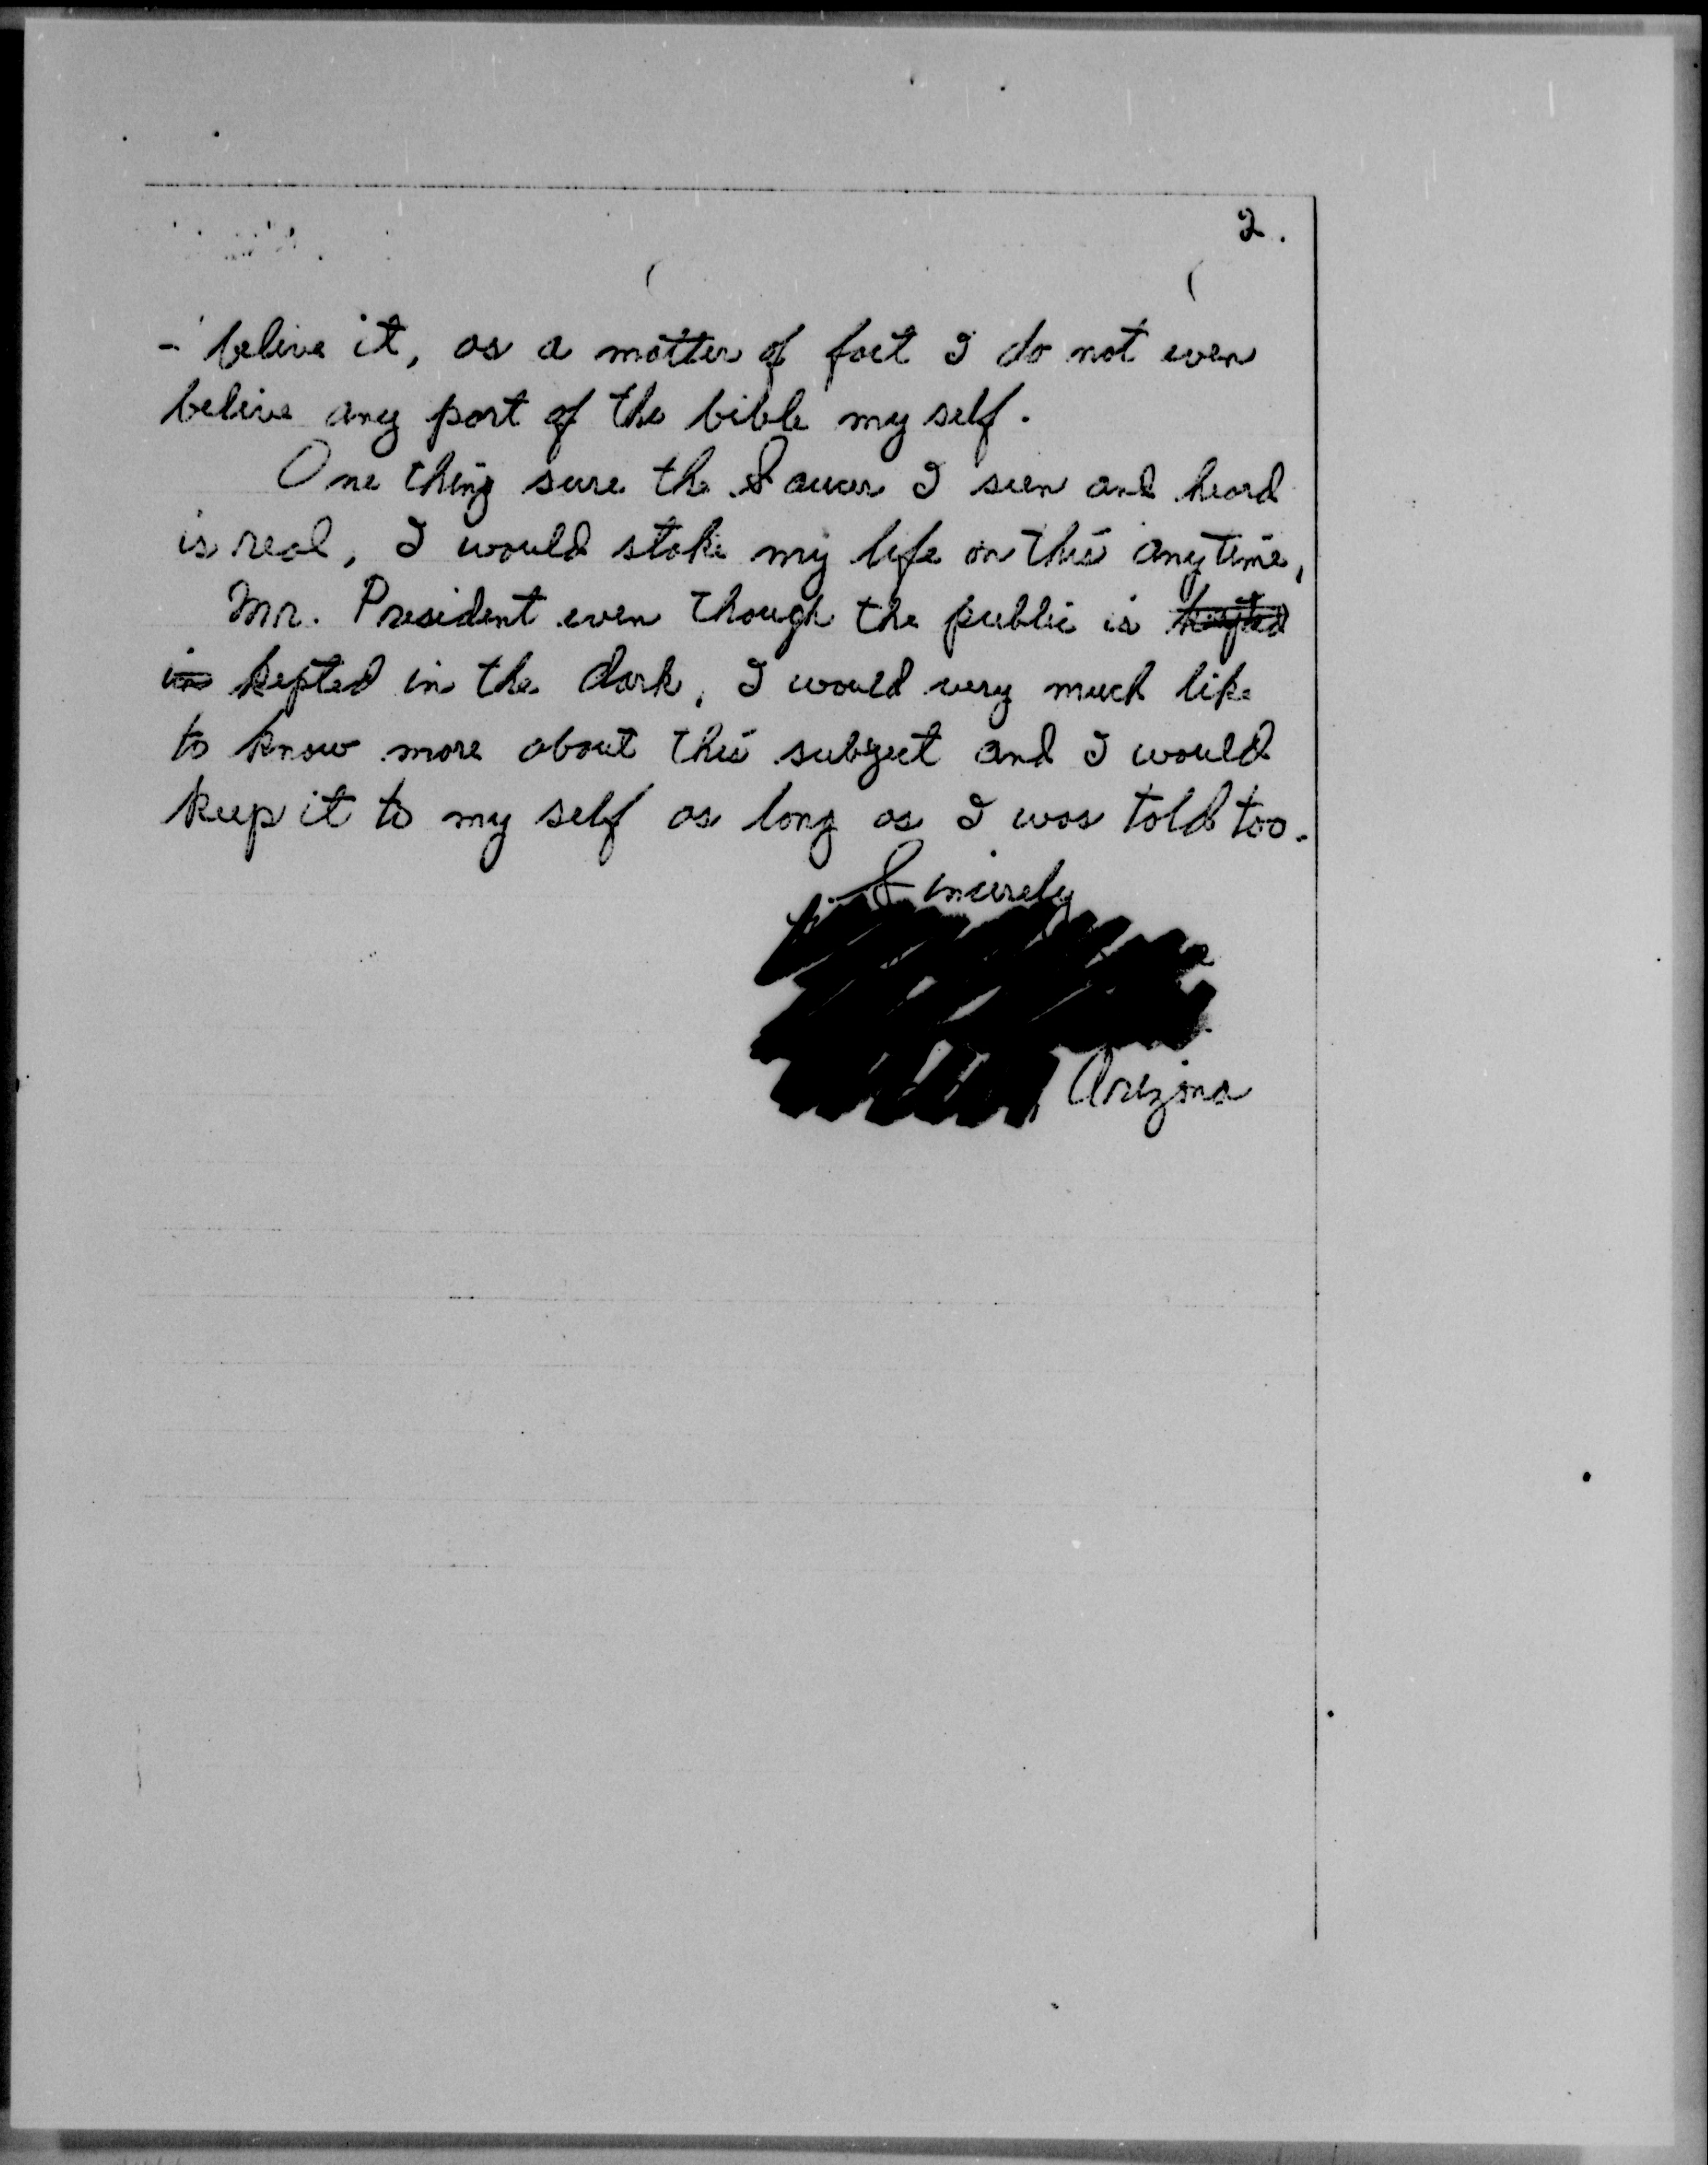 2.
- belive it, as a matter of fact I do not even
belive any part of the bible my self.
One thing sure the Saucer I seen and heard
is real, I would stake my life on this anytime,
Mr. President even though the public is
in kepted in the dark, I would very much like
to know more about this subject and I would
keep it to my self as long as I was told too.
Sincerely
Arizona